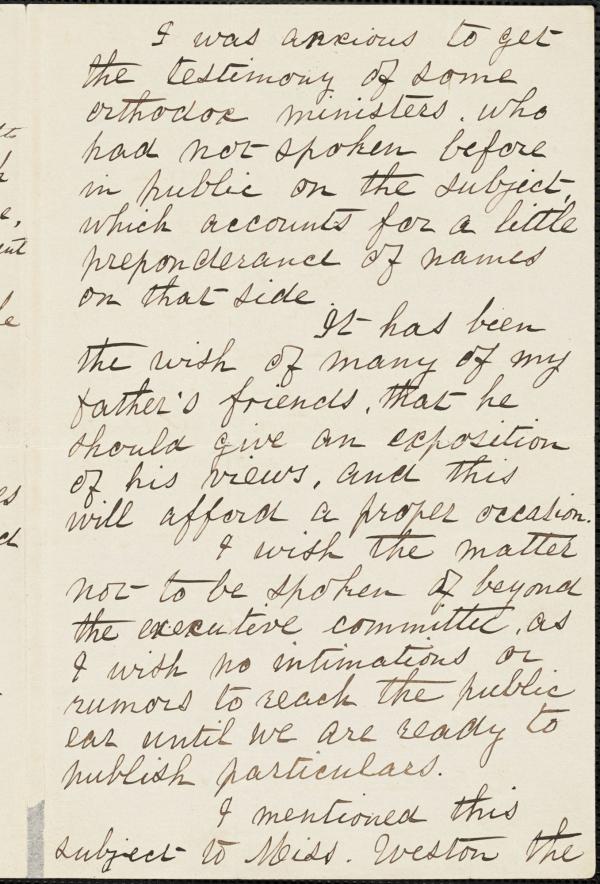 I was anxious to get
the testimony of some
orthodox ministers, who
had not spoken before
in public on the subject,
which accounts for a little
preponderance of names
on that side.
It has been
the wish of many of my
father's friends, that he
should give an exposition
of his views, and this
will afford a proper occasion.
I wish the matter
not to be spoken of beyond
the executive committee, as
I wish no intimations or
rumors to reach the public
ear until we are ready to
publish particulars.
I mentioned this
subject to Miss. Weston the